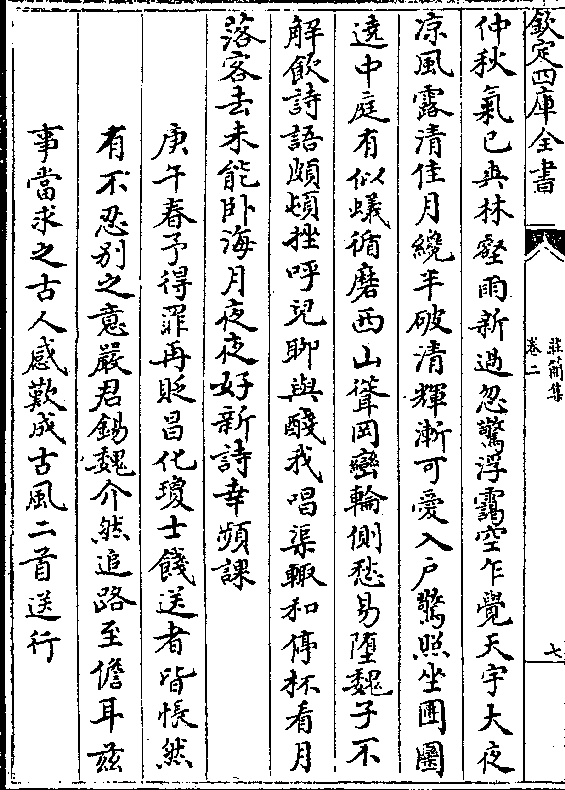 欽定四庫全書
莊簡集
卷二
七
仲秋氣已爽林壑雨新過忽驚浮靄空乍覺天宇大夜
凉風露清佳月纔半破清輝漸可愛入戶驚照坐團團
遶中庭有似蟻循磨西山聳岡巒輪側愁易墮魏子不
解飲詩語頗頓挫呼兒聊與醆我唱渠輙和停杯看月
落客去未能卧海月夜夜好新詩幸頻課
庚午春予得罪再貶昌化瓊士餞送者皆悵然
有不忍别之意嚴君錫魏介然追路至儋耳兹
事當求之古人感歎成古風二首送行